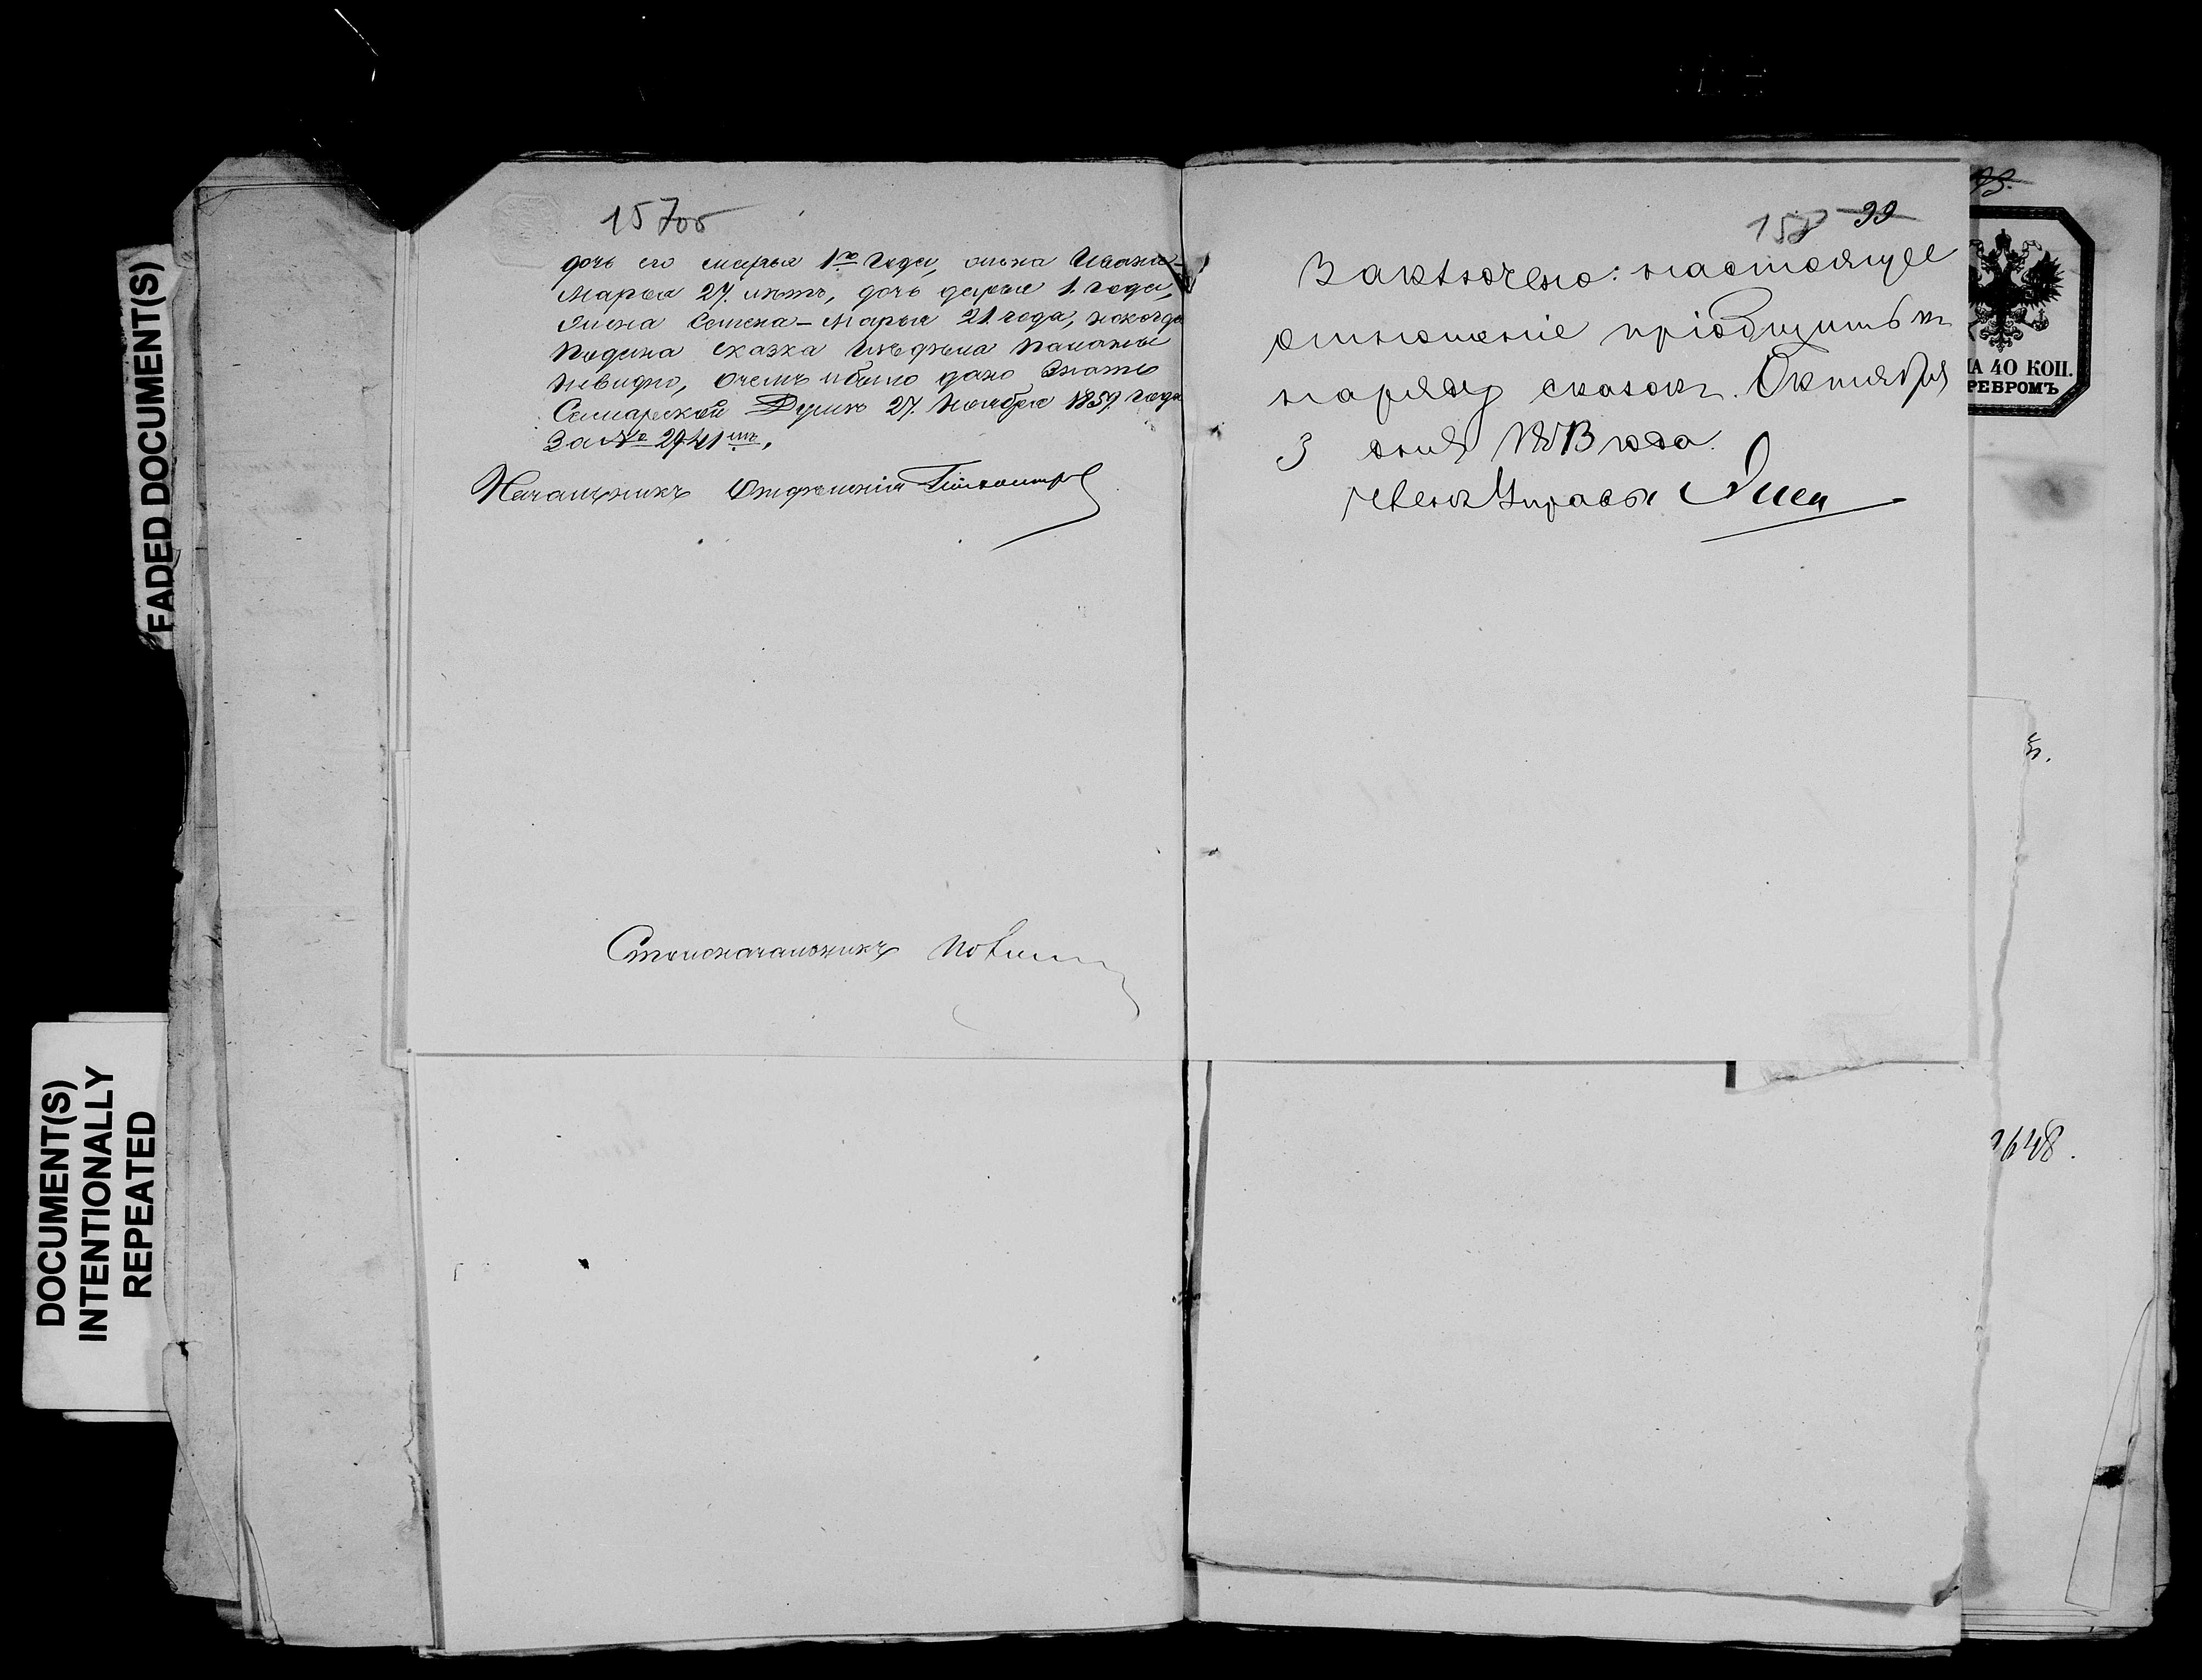 FADED DOCUMENT(S)
DOCUMENT(S)
INTENTIONALLY
REPEATED
157об
дочь его Марья 1го года, жена Ивана-
Марья 27. лѣтъ, дочь Дарья 1. года,
жена Семена-Марья 21 года, но когда
подана сказка изъ дѣла Палаты
невидно, о чемъ и было дано знать
Самарской Думѣ 27. Ноября 1859 года
За № 2941мъ.
Начальникъ Отдѣленія
Столоначальникъ
158 99
Заключено: настоящее
отношеніе пріобщить къ
наряду сказокъ. Октября
3 дня 1873 года.
Членъ Управы
ЦѢНА 40 КОП.
СЕРЕБРОМЪ
1648.